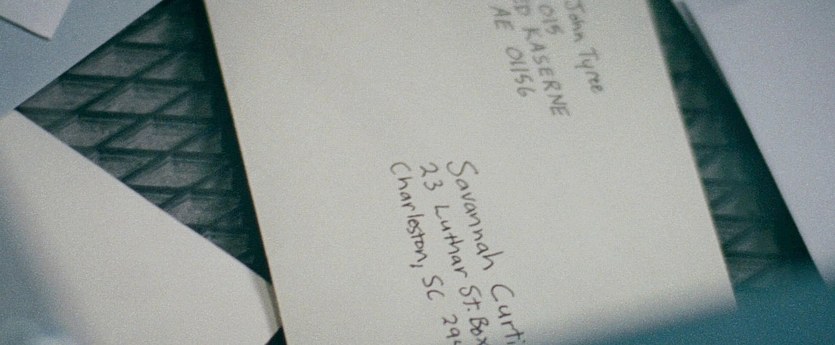 John Tyree
015
ED KASERNE
AE 01156
Savannah Curti
23 Luthar St. Box
Charleston, SC 294